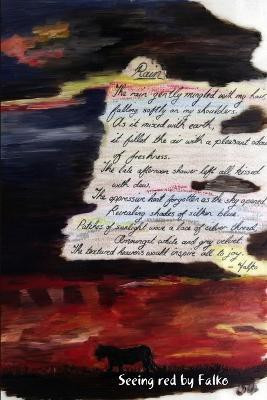 Rain
The rain gently mingled with my hair,
falling softly on my shoulders.
As it mixed with earth,
it filled the air with a pleasant odour
of freshness.
The late afternoon shower left all kissed
with dew.
The oppression heat forgotten as the sky opened
Revealing shades of silken blue.
Patches of sunlight wove a lace of silver thread,
Amongst white and grey velvet.
The textured heavens would inspire all to joy.
- Falko
Seeing red by Falko